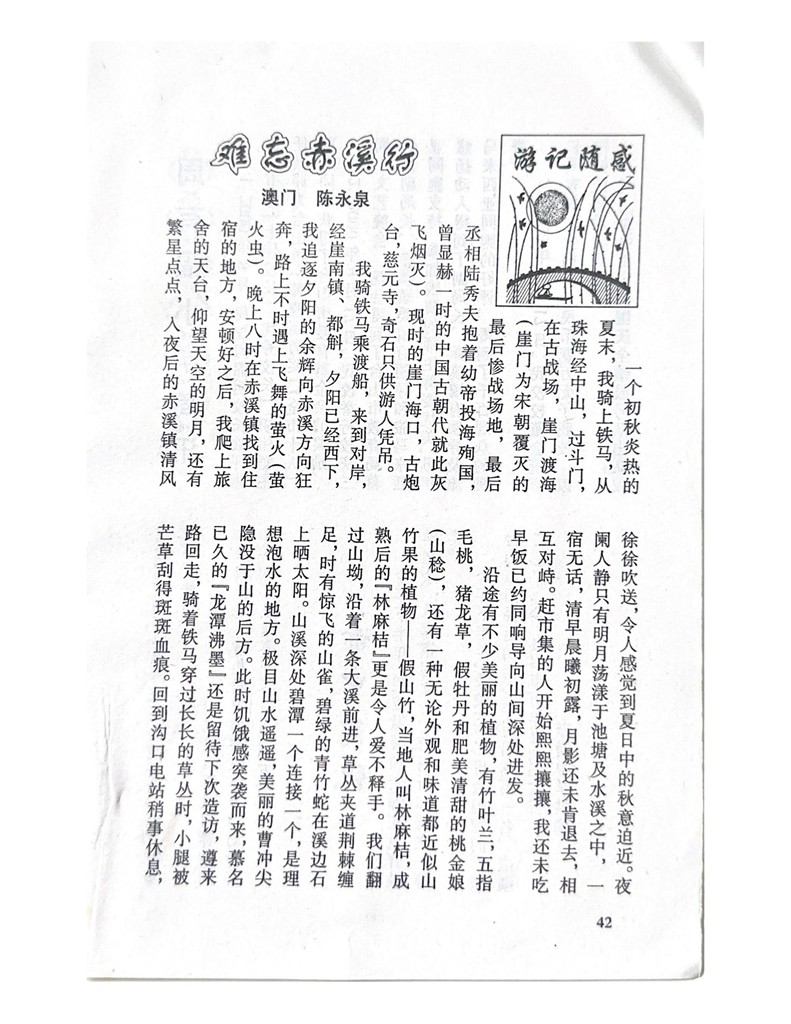 难忘赤溪行
澳门　陈永泉
游记随感
一个初秋炎热的
夏末，我骑上铁马，从
珠海经中山，过斗门，
在古战场，崖门渡海
(崖门为宋朝覆灭的
最后惨战场地，最后
丞相陆秀夫抱着幼帝投海殉国，
曾显赫一时的中国古朝代就此灰
飞烟灭)。现时的崖门海口，古炮
台，慈元寺，奇石只供游人凭吊。
我骑铁马乘渡船，来到对岸，
经崖南镇、都斛，夕阳已经西下，
我追逐夕阳的余辉向赤溪方向狂
奔，路上不时遇上飞舞的萤火(萤
火虫)。晚上八时在赤溪镇找到住
宿的地方，安顿好之后，我爬上旅
舍的天台，仰望天空的明月，还有
繁星点点，入夜后的赤溪镇清风
徐徐吹送，令人感觉到夏日中的秋意迫近。夜
阑人静只有明月荡漾于池塘及水溪之中，一
宿无话，清早晨曦初露，月影还未肯退去，相
互对峙。赶市集的人开始熙熙攘攘，我还未吃
早饭已约同响导向山间深处进发。
沿途有不少美丽的植物，有竹叶兰，五指
毛桃，猪龙草，假牡丹和肥美清甜的桃金娘
(山稔)，还有一种无论外观和味道都近似山
竹果的植物——假山竹，当地人叫林麻桔，成
熟后的『林麻桔』更是令人爱不释手。我们翻
过山坳，沿着一条大溪前进，草丛夹道荆棘缠
足，时有惊飞的山雀，碧绿的青竹蛇在溪边石
上晒太阳。山溪深处碧潭一个连接一个，是理
想泡水的地方。极目山水遥遥，美丽的曹冲尖
隐没于山的后方。此时饥饿感突袭而来，慕名
已久的『龙潭沸墨』还是留待下次造访，遵来
路回走，骑着铁马穿过长长的草丛时，小腿被
芒草刮得斑斑血痕。回到沟口电站稍事休息，
42